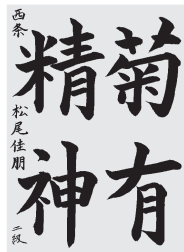 菊有
精神
西条 松尾佳朋 二級